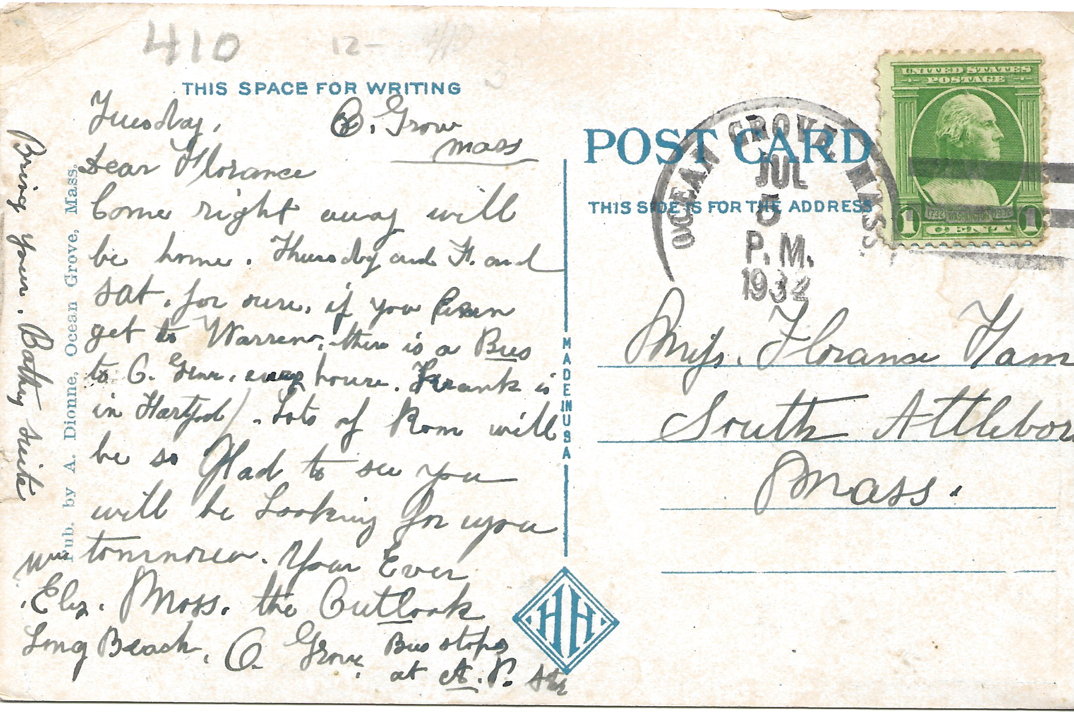 410
12-
THIS SPACE FOR WRITING
Tuesday, O. Grove
Mass
Dear Florance
Come right away will
be home. Thursday and F. and
Sat. for sure, if you
get to Warren, there is a Bus
to O. Grove. every houre. Frank is
in Hartford. Lots of Rom will
be so Glad to see you
will be Looking for you
tomorrow. Your Ever
Mrs
Eliz. Moss. the Outlook
Long Beach, O. Grove.
Bus stops
at A. P. Str
Bring your. Bathing suite
Pub. by A. Dionne, Ocean Grove, Mass.
MADE IN USA
HH
POST CARD
THIS SIDE IS FOR THE ADDRESS
OCEAN GROVE MASS.
JUL
5
P.M.
1932
UNITED STATES
POSTAGE
1732 WASHINGTON 1932
1 CENT 1
Miss. Florance Ham
South Attlebor
Mass.